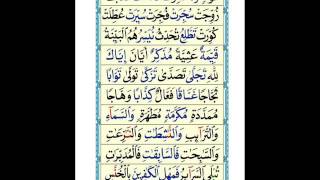 زُوِّجَتْ سُجِّرَتْ فُجِّرَتْ سُيِّرَتْ عُطِّلَتْ
كُوِّرَتْ تَطَّلِعُ تُحَدِّثُ نُيَسِّرُ هُمُ الْبَيِّنَةُ
قَيِّمَةٌ عَشِيَّةً مُذَكِّرٌ اَيَّانَ اِيَّاكَ
لِلّٰهِ تَجَلّٰى تَصَدّٰى تَزَكّٰى تَوَلّٰى تَوَّابًا
ثَجَّاجًا غَسَّاقًا فَعَّالٌ كِذَّابًا وَهَّاجًا
مُمَدَّدَةٍ مُكَرَّمَةٍ مُطَهَّرَةٍ وَالسَّمَآءِ
وَالتَّرَآئِبِ وَالنّٰشِطٰتِ وَالنّٰزِعٰتِ
وَالسّٰبِحٰتِ فَالسّٰبِقٰتِ فَالْمُدَبِّرٰتِ
تُبْلَى السَّرَآئِرُ فَمَهِّلِ الْكٰفِرِيْنَ بِالْخُنَّسِ